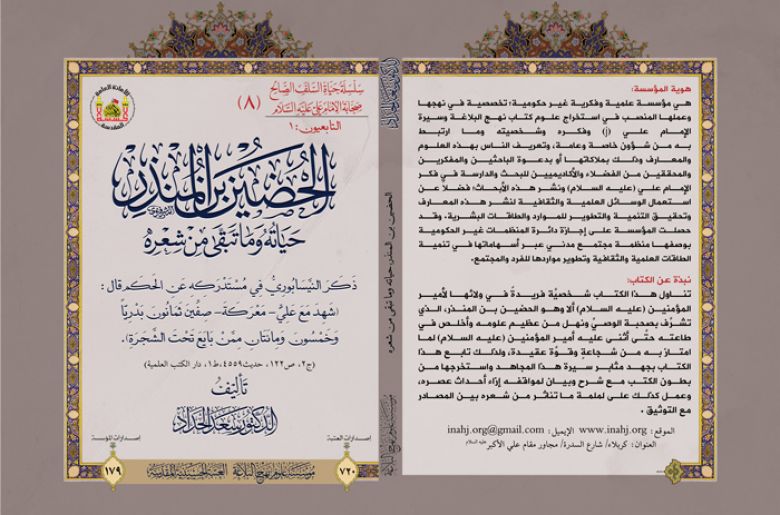 سلسلة حياة السلف الصالح
صحابة الإمام علي عليه السلام
(٨)
التابعيون: ١
الحضين بن المنذر
حياته وما تبقى من شعره
ذكر النيسابوري في مستدركه عن الحكم قال:
(شهد مع علي - معركة - صفين ثمانون بدريا
وخمسون ومائتان ممن بايع تحت الشجرة).
(ج٢، ص١٢٢، حديث٤٥٥٩، ط١، دار الكتب العلمية)
تأليف
الدكتور سعد الحداد
إصدارات العتبة
٧٢٠
إصدارات المؤسسة
١٧٩
مؤسسة علوم نهج البلاغة العتبة الحسينية المقدسة
الدكتور سعد الحداد
الحضين بن المنذر، حياته وما تبقى من شعره
مؤسسة علوم نهج البلاغة
هوية المؤسسة:
هي مؤسسة علمية وفكرية غير حكومية؛ تخصصية في نهجها
وعملها المنصب في استخراج علوم كتاب نهج البلاغة وسيرة
الإمام علي (j) وفكره وشخصيته وما ارتبط
به من شؤون خاصة وعامة، وتعريف الناس بهذه العلوم
والمعارف وذلك بملاكاتها أو بدعوة الباحثين والمفكرين
والمحققين من الفضلاء والأكاديميين للبحث والدارسة في فكر
الإمام علي (عليه السلام) ونشر هذه الأبحاث؛ فضلاً عن
استعمال الوسائل العلمية والثقافية لنشر هذه المعارف
وتحقيق التنمية والتطوير للموارد والطاقات البشرية. وقد
حصلت المؤسسة على إجازة دائرة المنظمات غير الحكومية
بوصفها منظمة مجتمع مدني عبر أسهاماتها في تنمية
الطاقات العلمية والثقافية وتطوير مواردها للفرد والمجتمع.
نبذة عن الكتاب:
تناول هذا الكتاب شخصيّة فريدة في ولائها لأمير
المؤمنين (عليه السلام) ألا وهو الحضين بن المنذر، الذي
تشرّف بصحبة الوصيّ ونهل من عظيم علومه وأخلص في
طاعته حتّى أثنى عليه أمير المؤمنين (عليه السلام) لما
امتاز به من شجاعةٍ وقوّة عقيدة، ولذلك تابع هذا
الكتاب بجهد مثابر سيرة هذا المجاهد واستخرجها من
بطون الكتب مع شرح وبيان لمواقفه إزاء أحداث عصره،
وعمل كذلك على لملمة ما تناثر من شعره بين المصادر
مع التوثيق.
الموقع: www.inahj.org الإيميل: inahj.org@gmail.com
العنوان: كربلاء/ شارع السدرة/ مجاور مقام علي الأكبر عليه السلام